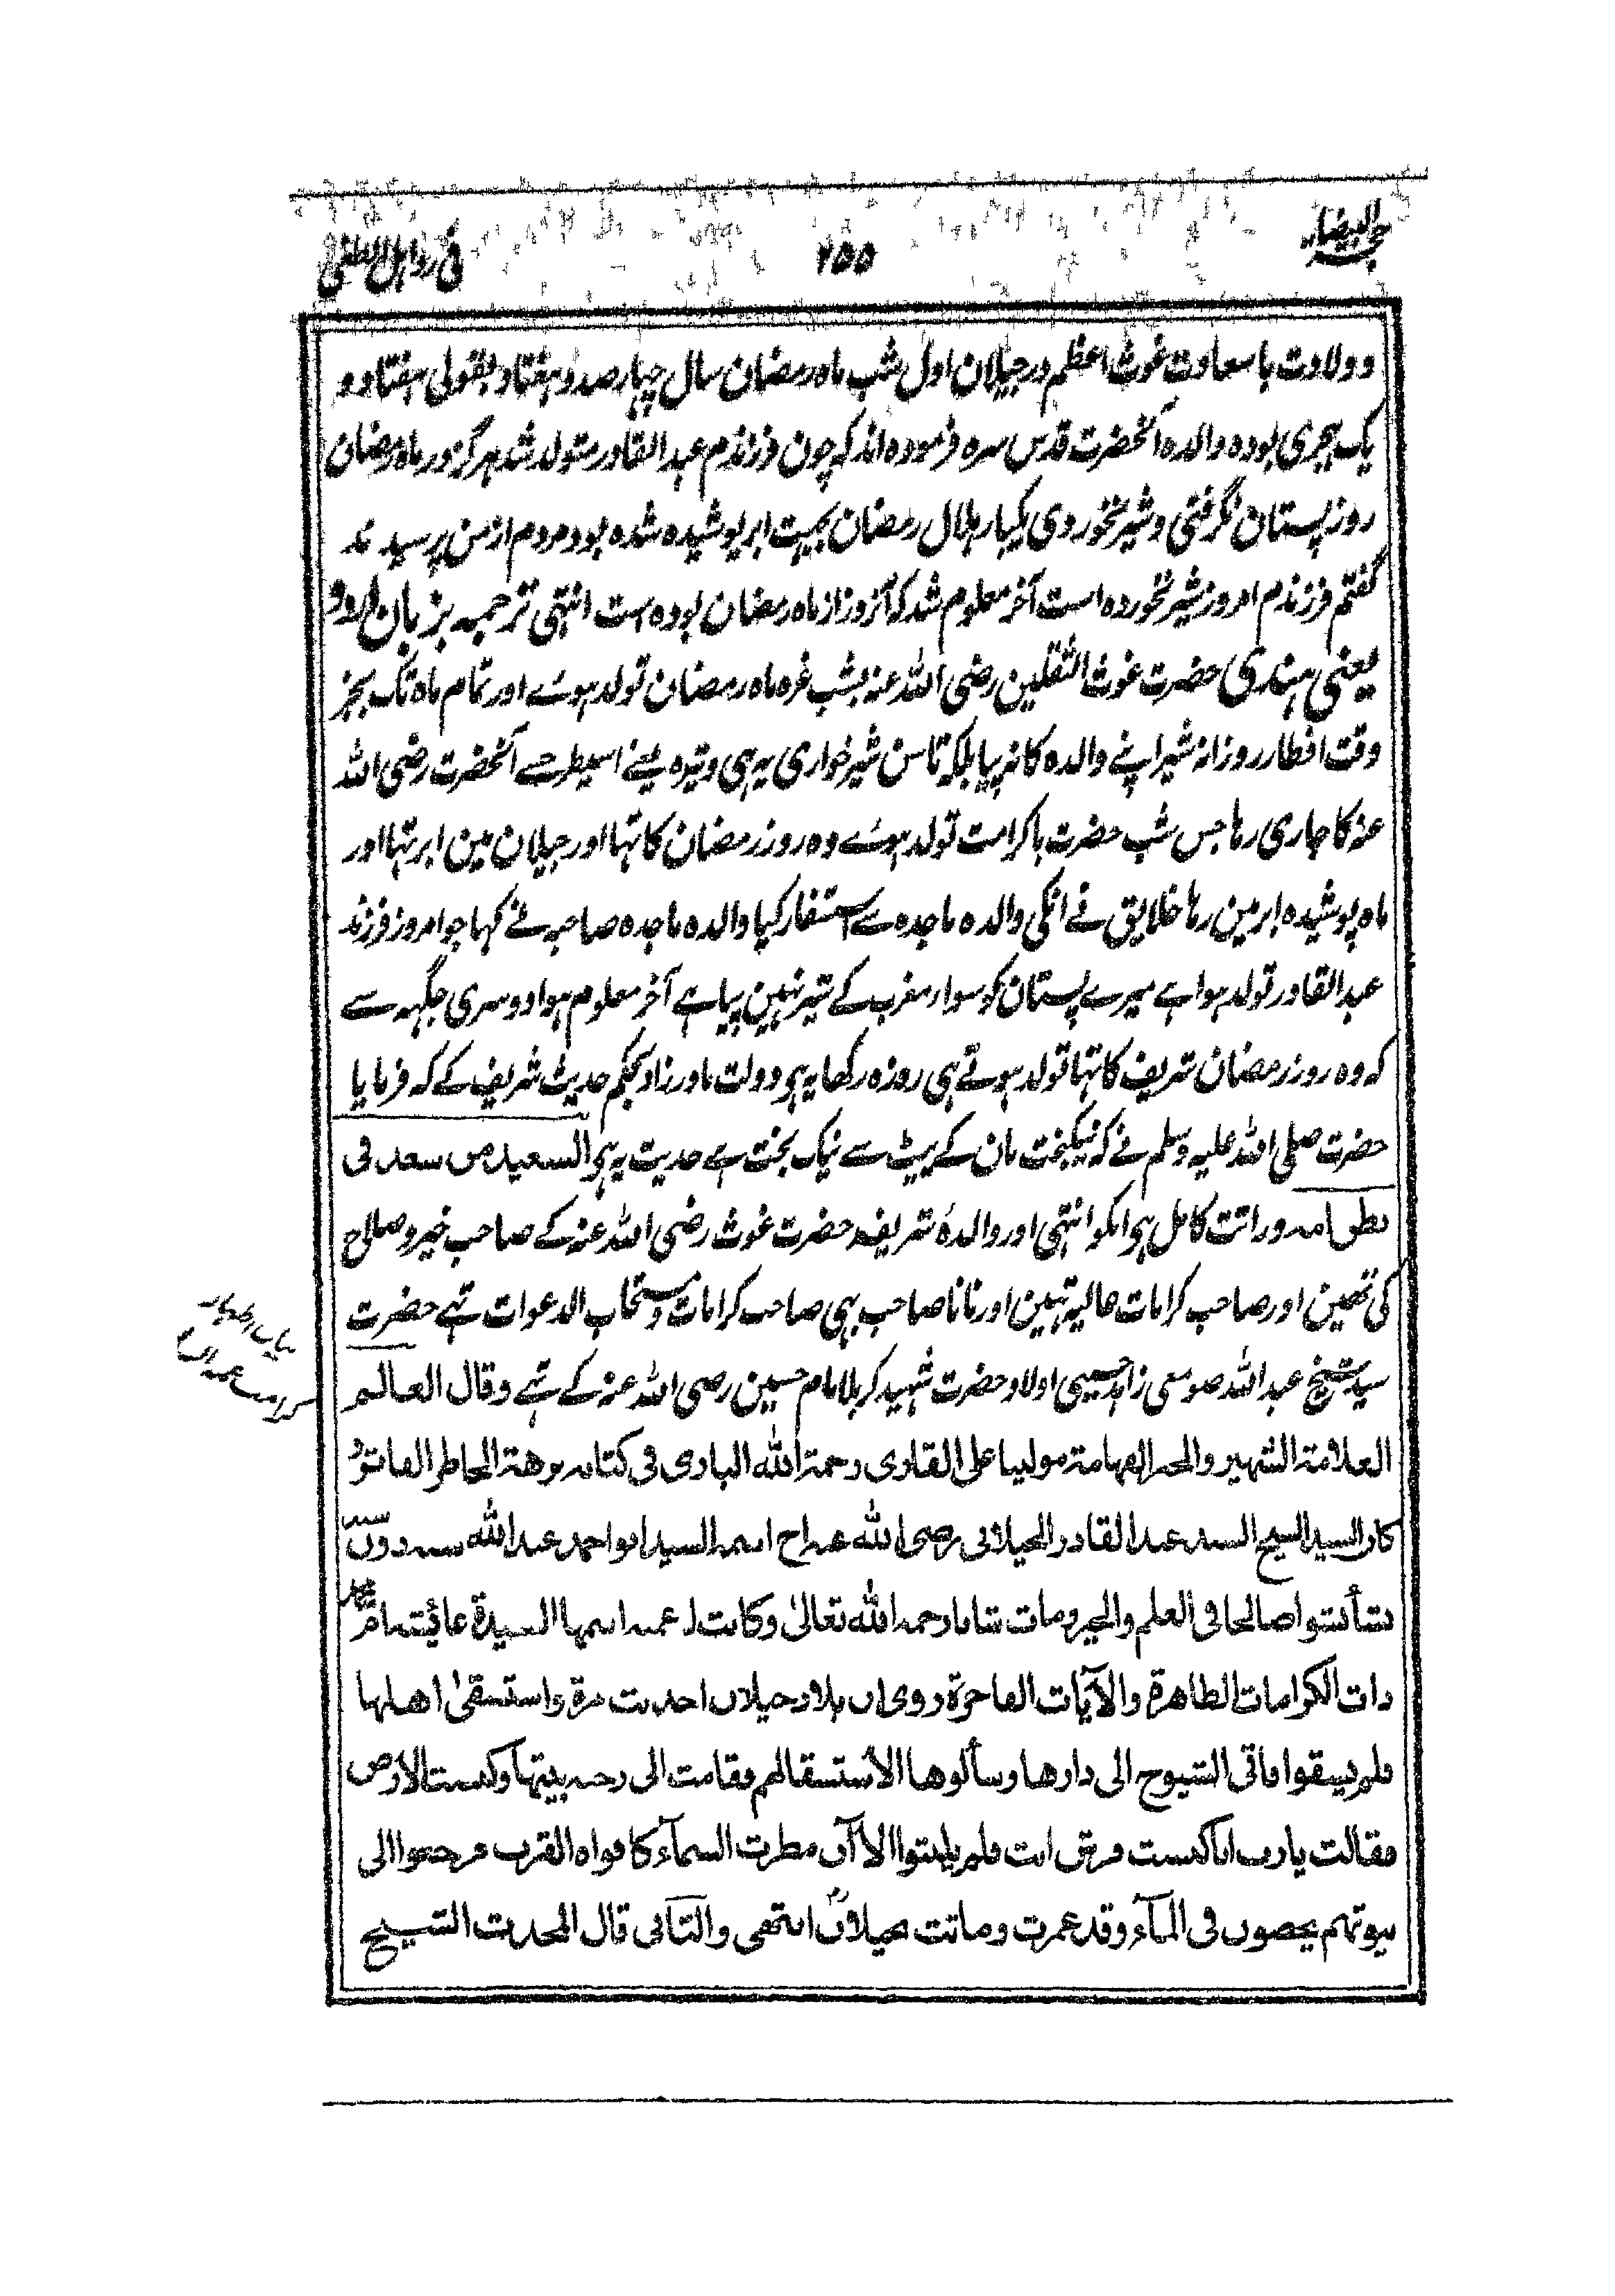 حجۃ البیضاء
۲۵۵
فی رد اہل الطغی
و ولادت با سعادت غوث اعظم در جیلان اول شب ماہ رمضان سال چہار صد و ہفتاد بقولی ہفتاد و
یک ہجری بودہ والدہ آنحضرت قدس سرہ فرمودہ اند کہ چون فرزندم عبد القادر متولد شد ہرگز در ماہ رمضان
روز پستان نگرفتی و شیر نخوردی یکبار ہلال رمضان بجہت ابر پوشیدہ شدہ بود مردم از من پرسیدند
گفتم فرزندم امروز شیر نخوردہ است آخر معلوم شد کہ آنروز از ماہ رمضان بودہ است انتہی ترجمہ بزبان اردو
یعنی ہندی حضرت غوث الثقلین رضی اللہ عنہ بشب غرہ ماہ رمضان تولد ہوئے اور تمام ماہ تک بجز
وقت افطار روزانہ شیر اپنے والدہ کا نہ پیا بلکہ تا سن شیر خواری یہ ہی وتیرہ یعنے اسیطرحسے آنحضرت رضی اللہ
عنہ کا جاری رہا جس شب حضرت با کرامت تولد ہوئے وہ روز رمضان کا تہا اور جیلان مین ابر تہا اور
ماہ پوشیدہ ابر مین رہا خلایق نے انکی والدہ ماجدہ سے استفسار کیا والدہ ماجدہ صاحبہ نے کہا جو امروز فرزند
عبد القادر تولد ہوا ہے میرے پستان کو سوار مغرب کے شیر نہین پیا ہے آخر معلوم ہوا دوسری جگہہ سے
کہ وہ روز رمضان شریف کا تہا تولد ہوتے ہی روزہ رکھا یہ ہو دولت مادر زاد بحکم حدیث شریف کے کہ فرمایا
حضرت صلی اللہ علیہ وسلم نے کہ نیکبخت مان کے پیٹ سے نیک بخت ہے حدیث یہ ہو السعید من سعد فی
بطن امہ وراثت کامل ہو انکو انتہی اور والدۂ شریفہ حضرت غوث رضی اللہ عنہ کے صاحب خیر و صلاح
کی تھین اور صاحب کرامات عالیہ تہین اور نانا صاحب بہی صاحب کرامات و مستجاب الدعوات تہے حضرت
سید شیخ عبد اللہ صومعی زاہد حسینی اولاد حضرت شہید کربلا امام حسین رضی اللہ عنہ کے تہے وقال العالم
العلامۃ الشہیر والبحر الفہامۃ مولینا علی القاری رحمۃ اللہ الباری فی کتابہ نزھۃ الخاطر الفاتر
کان السید الشیخ السید عبد القادر الجیلانی رضی اللہ عنہ اخ اسمہ السید ابو احمد عبد اللہ سنہ دون سنہ
نشأ نشوا صالحا فی العلم والخیر ومات شابا رحمہ اللہ تعالیٰ وکانت لہ عمۃ اسمہا السیدۃ عائشۃ ام محمد
ذات الکرامات الظاھرۃ والآیات الفاخرۃ روی ان بلاد جیلان اجدبت مرۃ واستسقیٰ اھلہا
فلم یسقوا فاتی الشیوخ الی دارھا وسألوھا الاستسقا لھم فقامت الی رحبۃ بیتہا وکنست الارض
فقالت یا رب انا کنست فرش انت فلم یلبثوا الا ان مطرت السمآء کافواہ القرب فرجعوا الی
بیوتہم یخصون فی المآء وقد عمرت وماتت بجیلان انتھی والثانی قال المحدث الشیخ